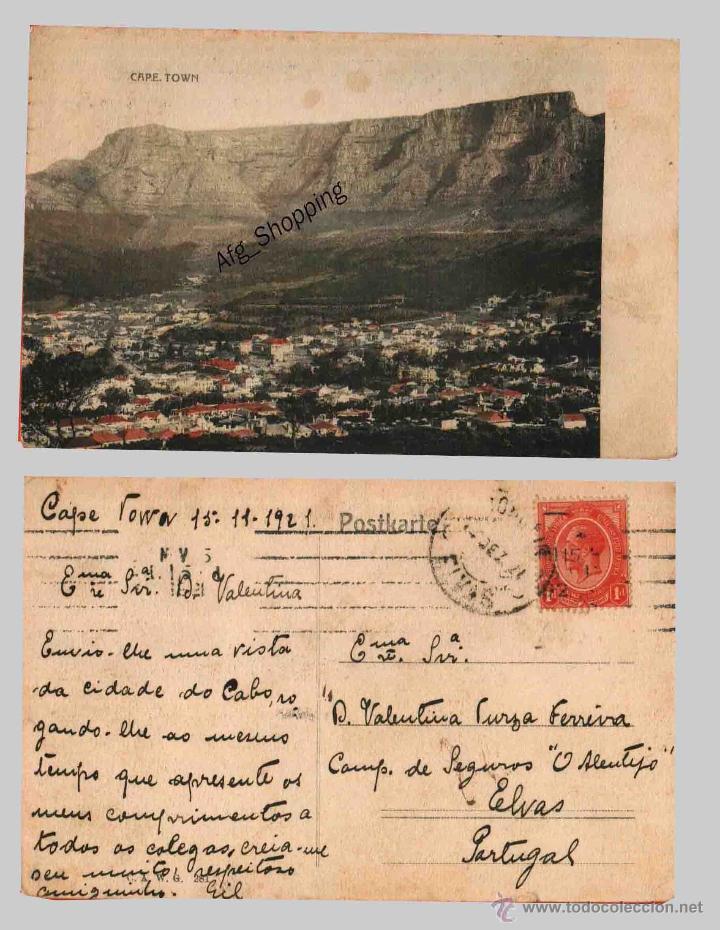 CAPE. TOWN
Afg_Shopping
Cape Town 15-11-1921.
Postkarte
ELVAS
Ema Snra. D. Valentina
1d 1d
Envio-lhe uma vista
da cidade do Cabo, ro
gando-lhe ao mesmo
tempo que apresente os
meus comprimentos a
todos os colegas, creia-me
seu muito respeitoso
amiguinho. Gil
Ema. Snra.
D. Valentina Turza Ferreira
Comp. de Seguros "O Alentejo"
Elvas
Portugal
A. W. G. 281
© www.todocoleccion.net